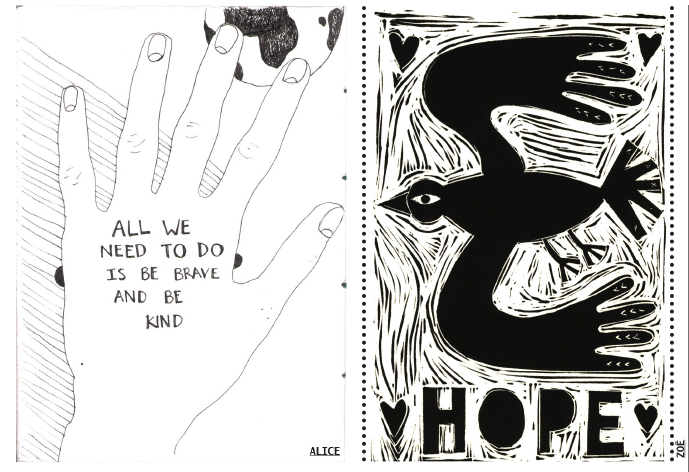 ALL WE
NEED TO DO
IS BE BRAVE
AND BE
KIND
ALICE
HOPE
ZOË